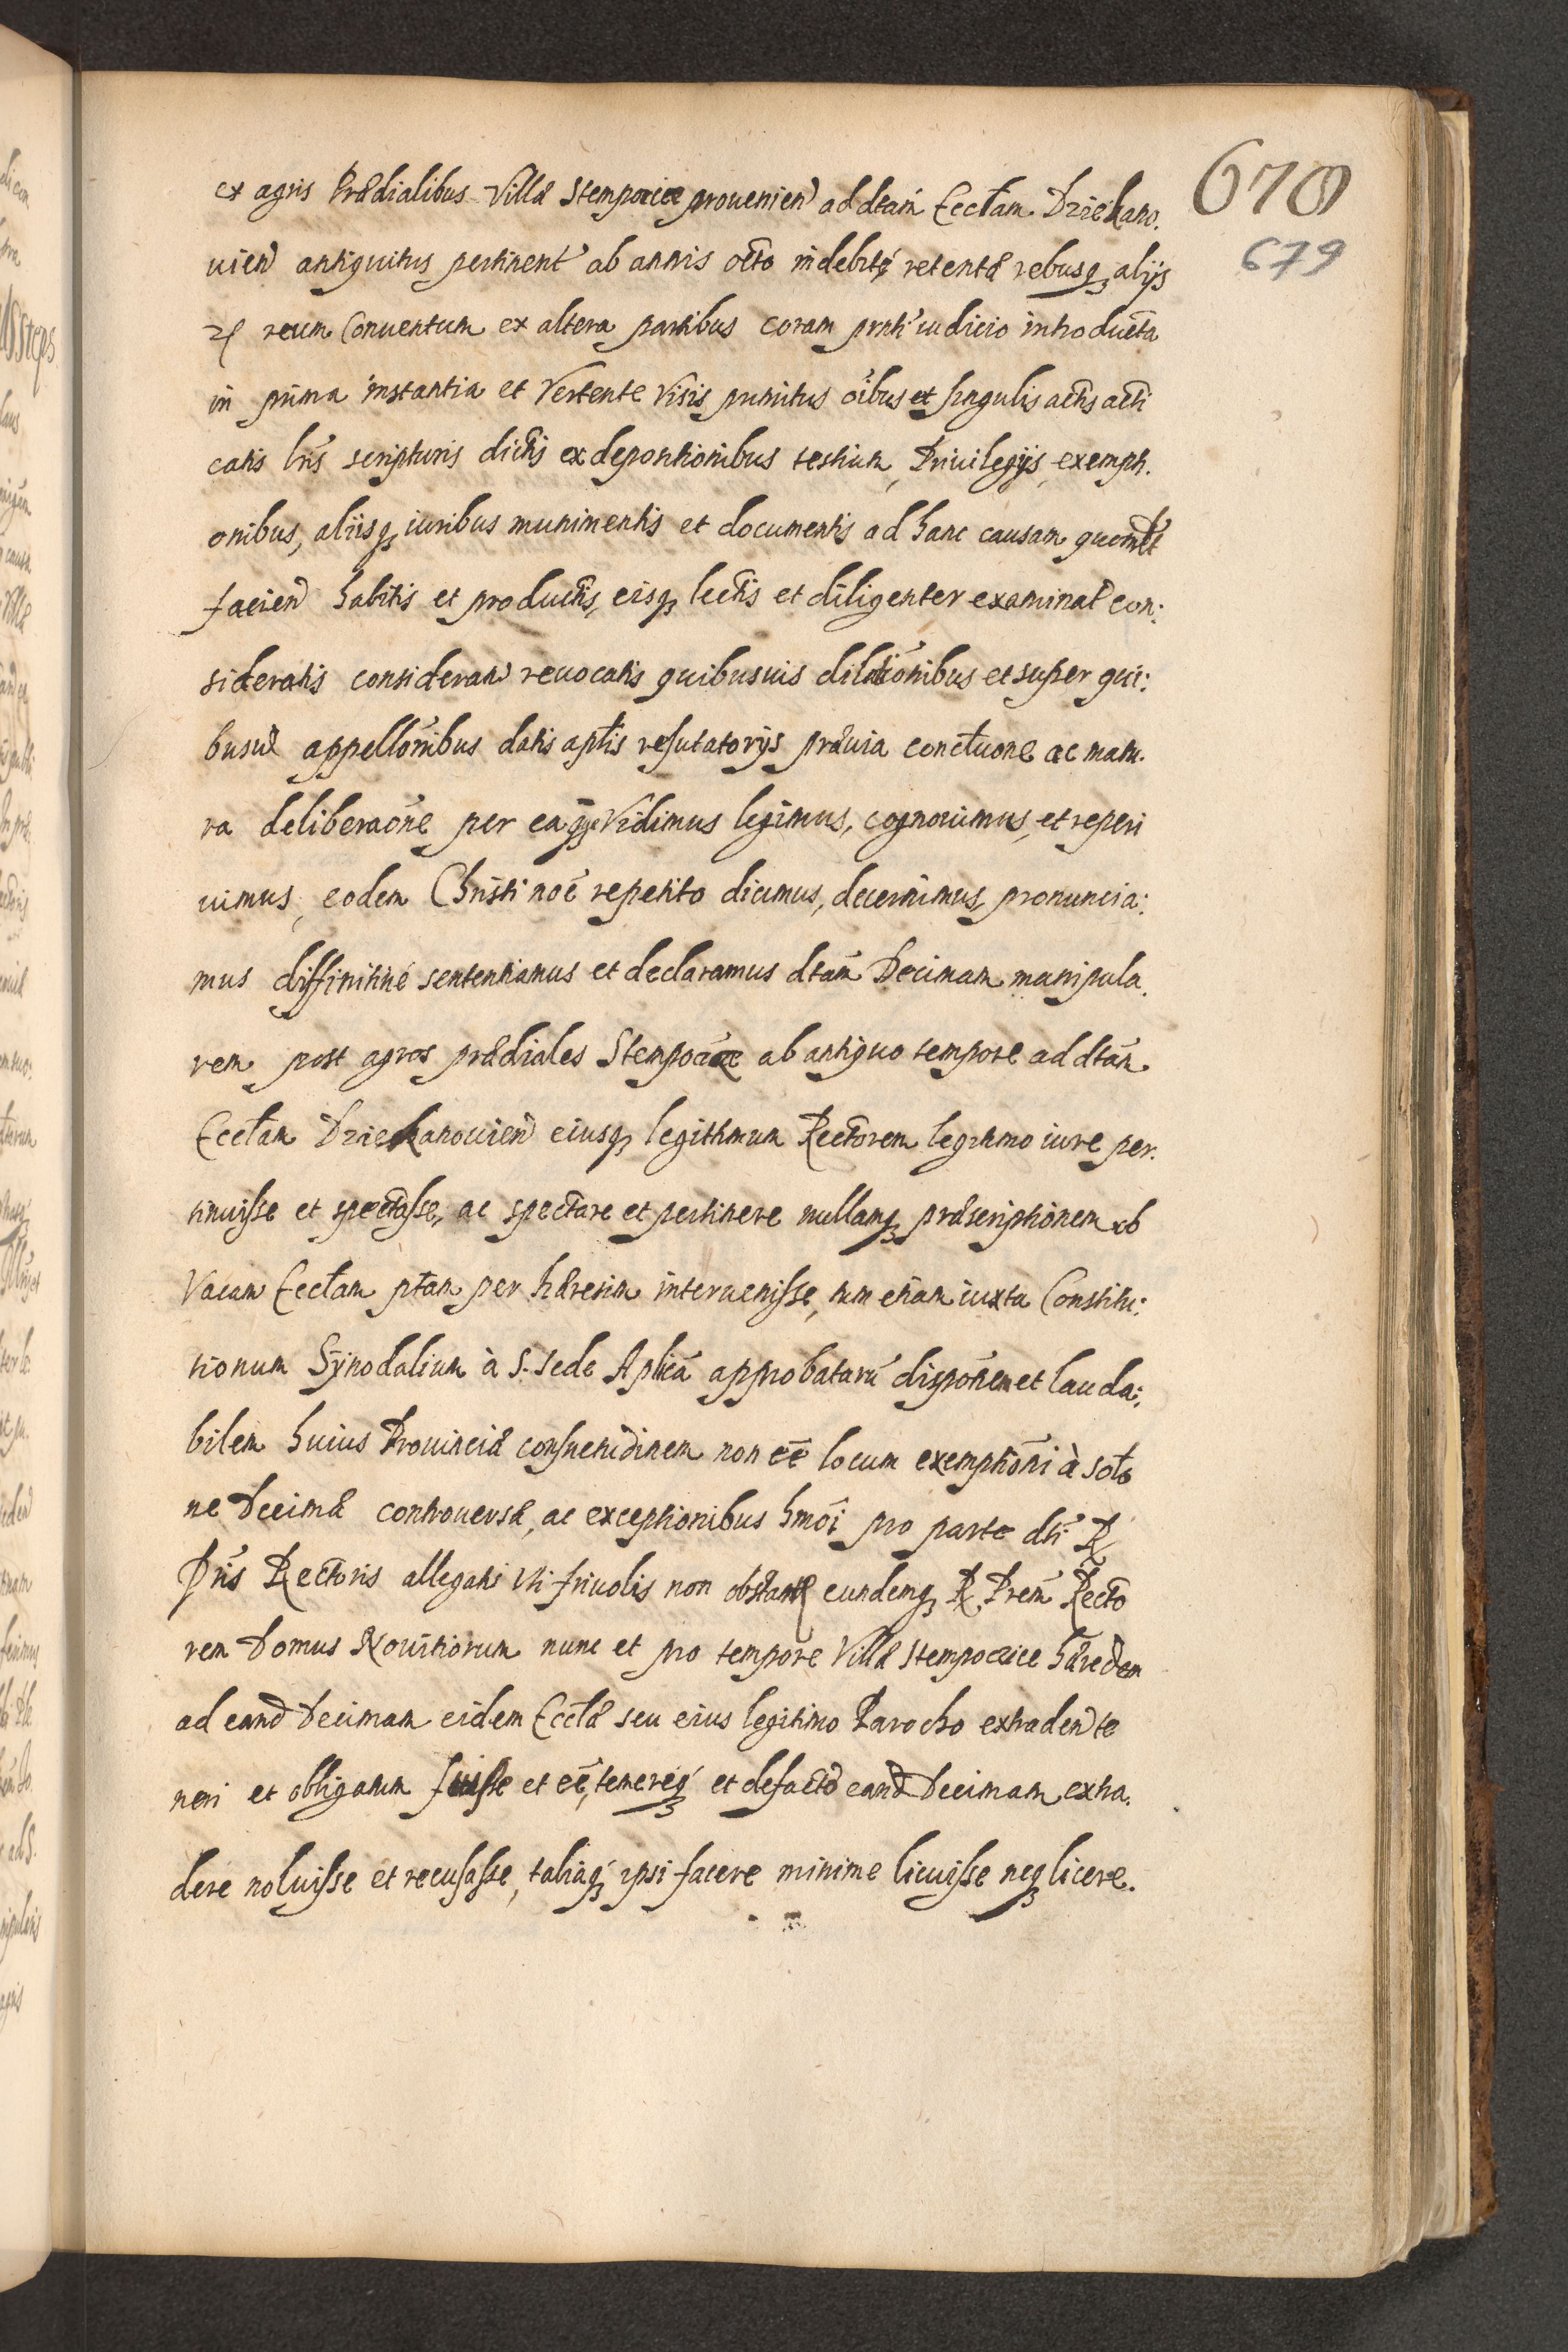 670
679
ex agris Prædialibus Villæ Stempocice prouenien̄ ad dtam̄ Eccl̄am Dziekano.
uien̄ antiquitus pertinent̄ ab annis octo indebitè retentæ rebusq; alijs
reum Conuentum ex altera partibus coram prn̄ti iudicio introducta
in prima instantia et Vertente Visis primitus oībus et singulis actis acti
catis lr̄is scripturis dictis ex depositionibus testium, Priuilegijs, exempti.
onibus, alijsq; iuribus munimentis et documentis ad hanc causam quomlt̄
facien̄ habitis et productis, eisq; lectis et diligenter examinat̄ con:
sideratis consideran̄ reuocatis quibusuis dilatiōnibus et super qui:
busuis appellōnibus datis apl̄is refutatorijs præuia conclusione ac matu.
ra deliberaōne per ea quæ Vidimus legimus, cognouimus, et reperi
uimus, eodem Christi noē repetito dicimus, decernimus, pronuncia:
mus diffinitiuè sententiamus et declaramus dtam̄ Decimam manipula.
rem post agros prædiales Stempocice ab antiquo tempore ad dtam̄
Eccl̄am Dziekanouien̄ eiusq; legitimum Rectorem legitimo iure per.
tinuisse et spectasse, ac spectare et pertinere nullamq; præscriptionem ob
Vacam Eccl̄am ptam̄ per hæresim interuenisse, tum etiam iuxta Constitu:
tionum Synodalium à S. Sede Aplicā approbatarū dispōnem et lauda:
bilem huius Prouinciæ consuetudinem non eē locum exemptiōni à solō
ne Decimæ controuersæ, ac exceptionibus hmōi pro parte dti R
Pr̄is Rectoris allegatis Vti friuolis non obstante eundemq; R. Prem̄ Recto
rem Domus Nouitiorum nunc et pro tempore Villæ Stempocice hæredem
ad eand̄ Decimam eidem Eccl̄æ seu eius legitimo Parocho extraden̄ te
neri et obligatum fuisse et eē, temereq; et de facto eand̄ Decimam extra.
dere noluisse et recusasse, taliaq; ipsi facere minime licuisse neq; licere.